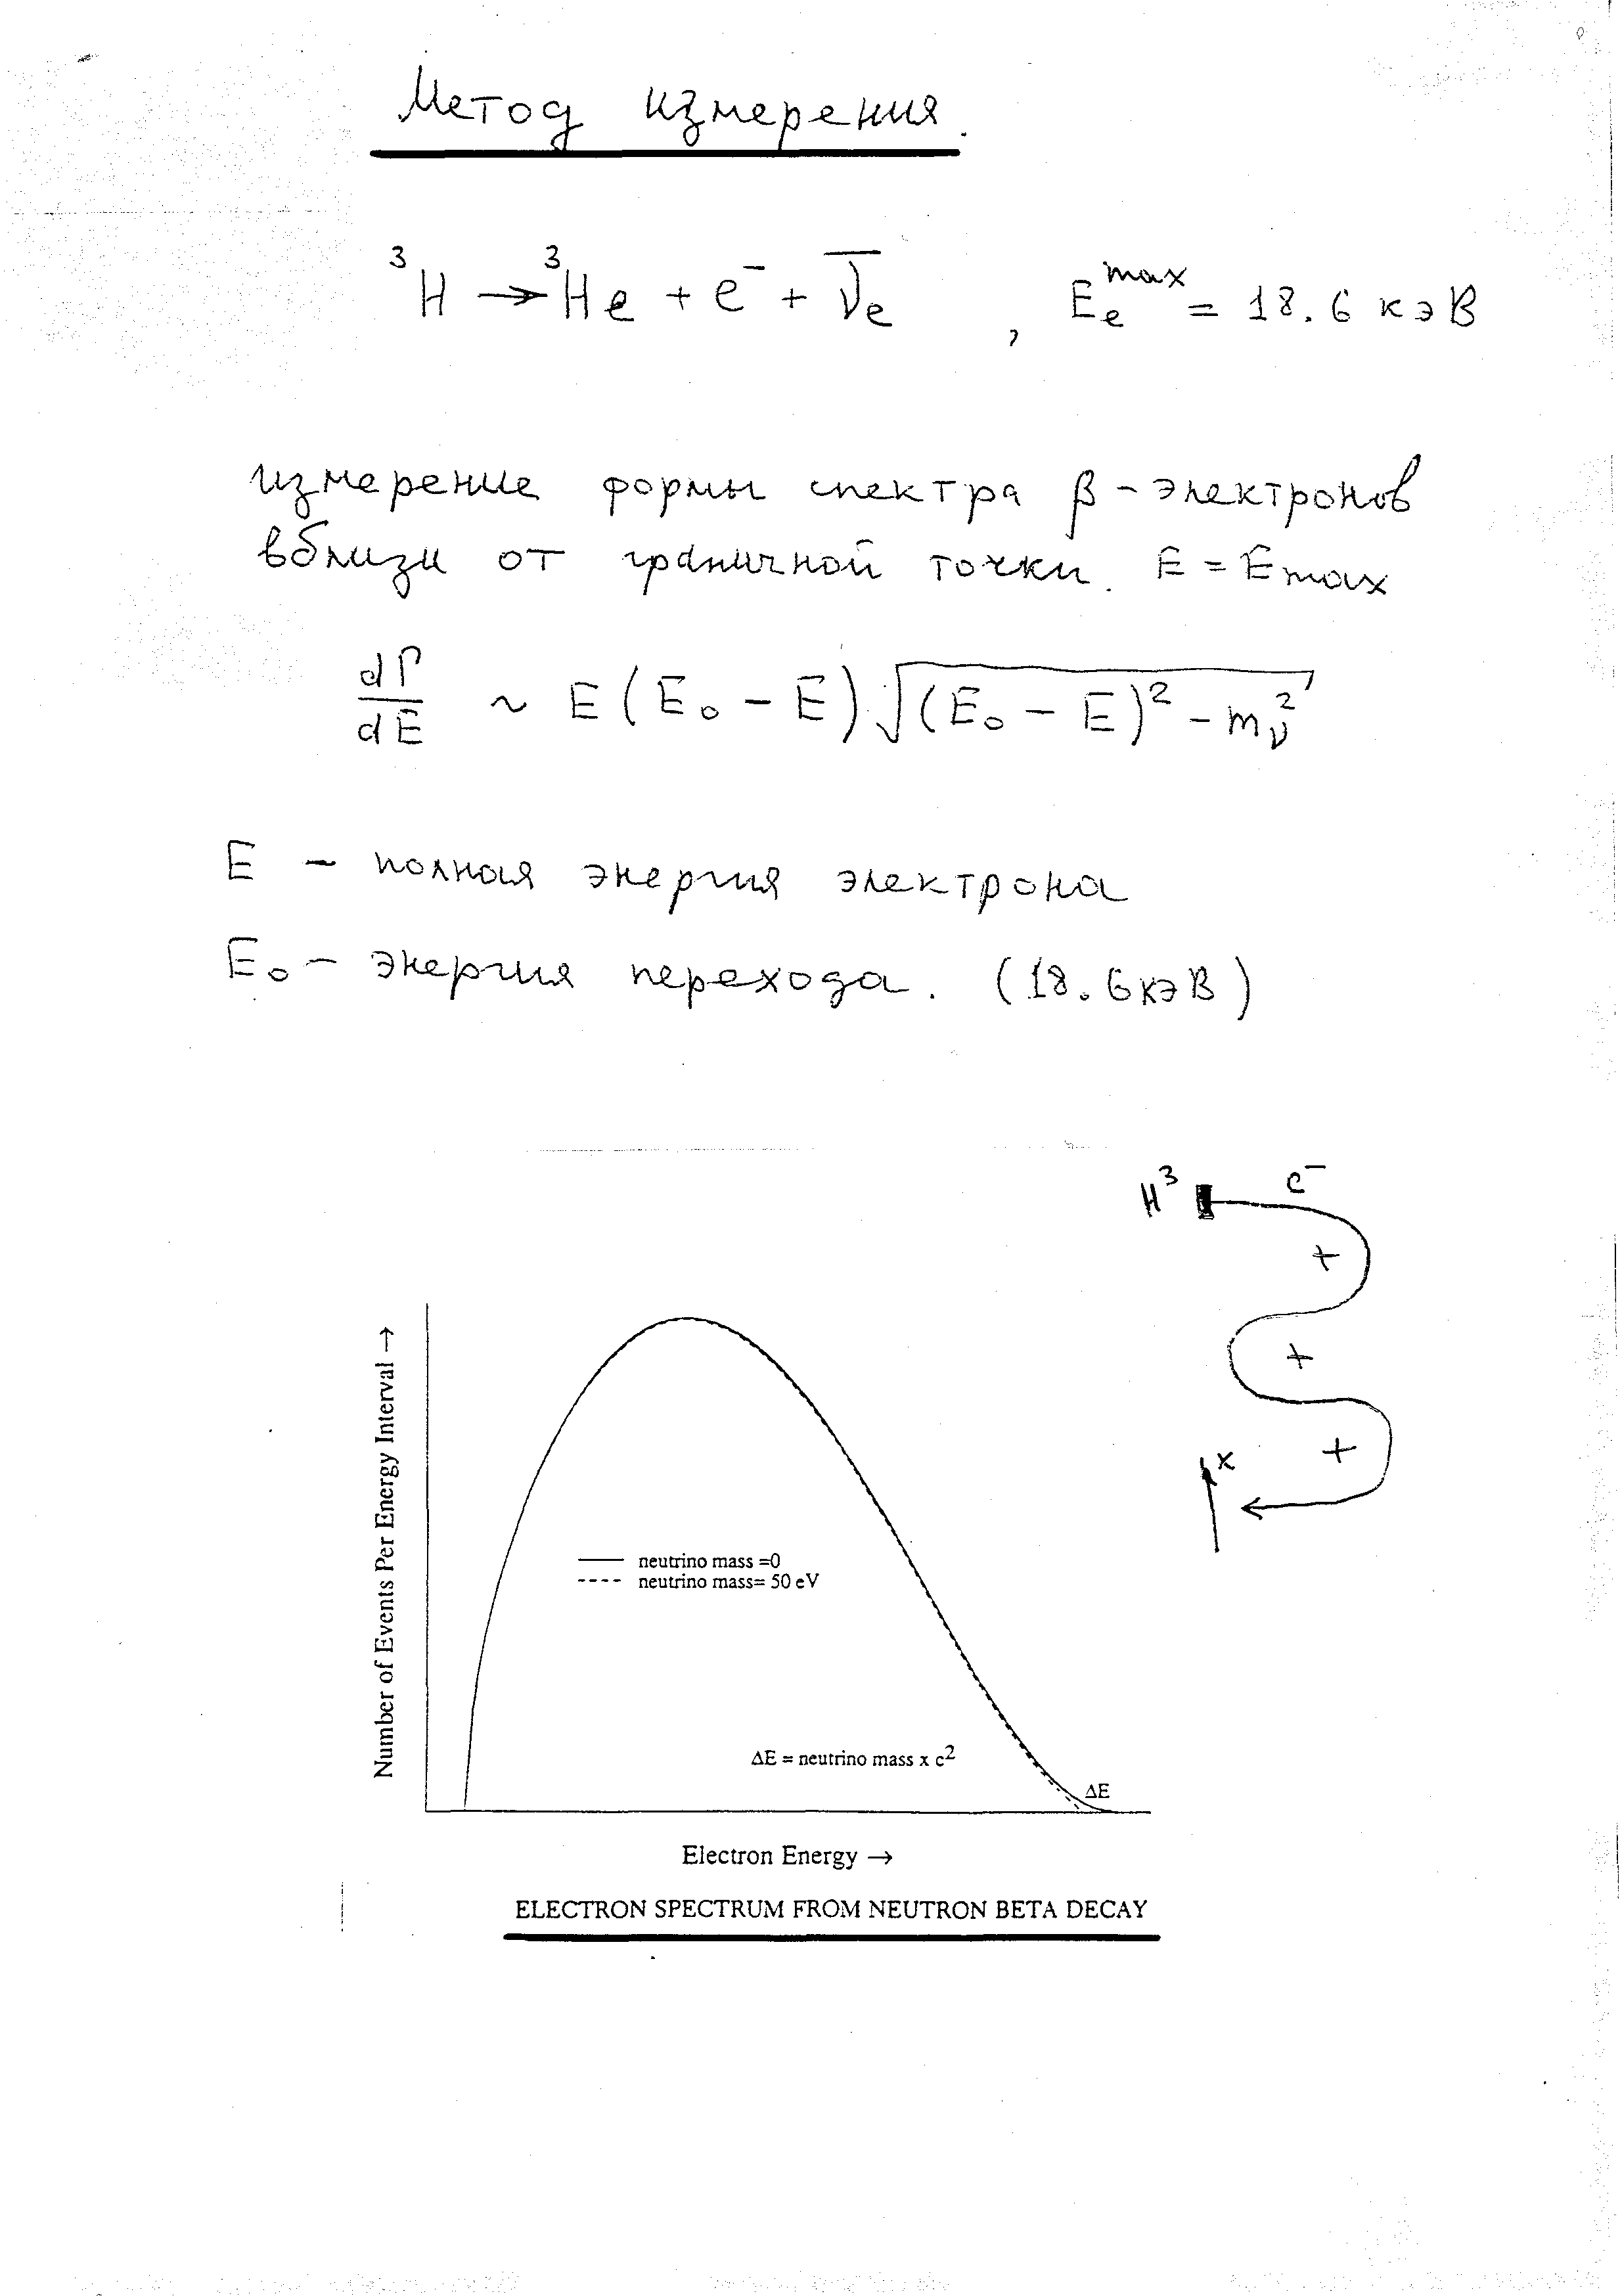 Метод измерения.
³H → ³He + e⁻ + ν̅ₑ , Eₑᵐᵃˣ = 18.6 кэВ
измерение формы спектра β-электронов
вблизи от граничной точки. E = Emax
dΓ/dE ~ E(E₀ - E)√((E₀ - E)² - mᵥ²)
E - полная энергия электрона
E₀ - энергия перехода. (18.6 кэВ)
H³ e⁻
+
+
+
x
Number of Events Per Energy Interval →
neutrino mass =0
neutrino mass= 50 eV
ΔE = neutrino mass x c²
ΔE
Electron Energy →
ELECTRON SPECTRUM FROM NEUTRON BETA DECAY